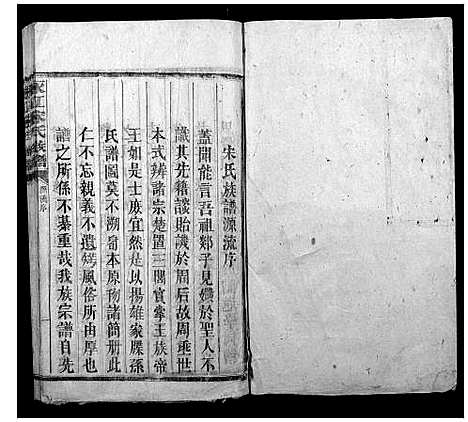 朱氏族譜源流序
蓋聞能言吾祖郯子見嫓於聖人不
識其先籍談貽譏於周后故周垂世
本式辨諸宗楚置三閭實掌王族帝
王如是士庶宜然是以揚雄家牒孫
氏譜圖莫不溯畨本原刋諸簡册此
仁不忘親義不遺矧風俗所由厚也
譜之所係不綦重哉我族宗譜自先
氏族譜
源流序